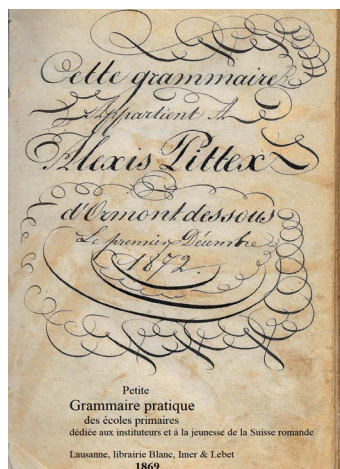 Cette grammaire
Appartient A
Alexis Pittex
d'Ormont dessous
Le premier Décembre
1872.
Petite
Grammaire pratique
des écoles primaires
dédiée aux instituteurs et à la jeunesse de la Suisse romande
Lausanne, librairie Blanc, Imer & Lebet
1869